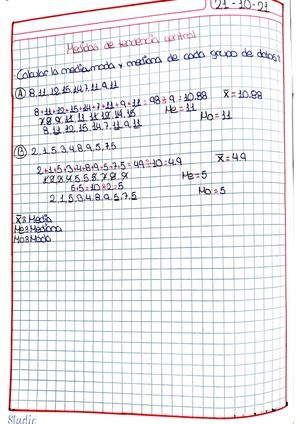 21-10-21
Medidas de tendencia central
Calcular la media, moda y mediana de cada grupo de datos:
A 8,11,12,15,14,7,11,9,11
8+11+12+15+14+7+11+9+11=98÷9=10.88 x̄=10.88
7,8,9,11,11,11,12,14,15 Me=11
8,11,12,15,14,7,11,9,11 Mo=11
B 2,1,5,3,4,8,9,5,7,5
2+1+5+3+4+8+9+5+7+5=49÷10=4.9 x̄=4.9
1,2,3,4,5,5,5,7,8,9 Me=5
5+5=10÷2=5
2,1,5,3,4,8,9,5,7,5 Mo=5
x̄=Media
Me=Mediana
Mo=Moda
Studio